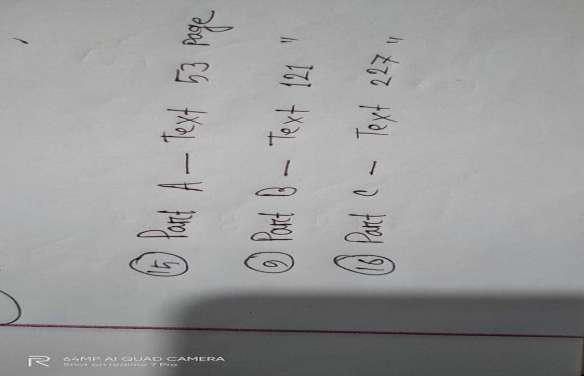 (15) Part A - Text 53 page
(9) Part B - Text 121 "
(16) Part C - Text 227 "
R 64MP AI QUAD CAMERA
Shot on realme 7 Pro